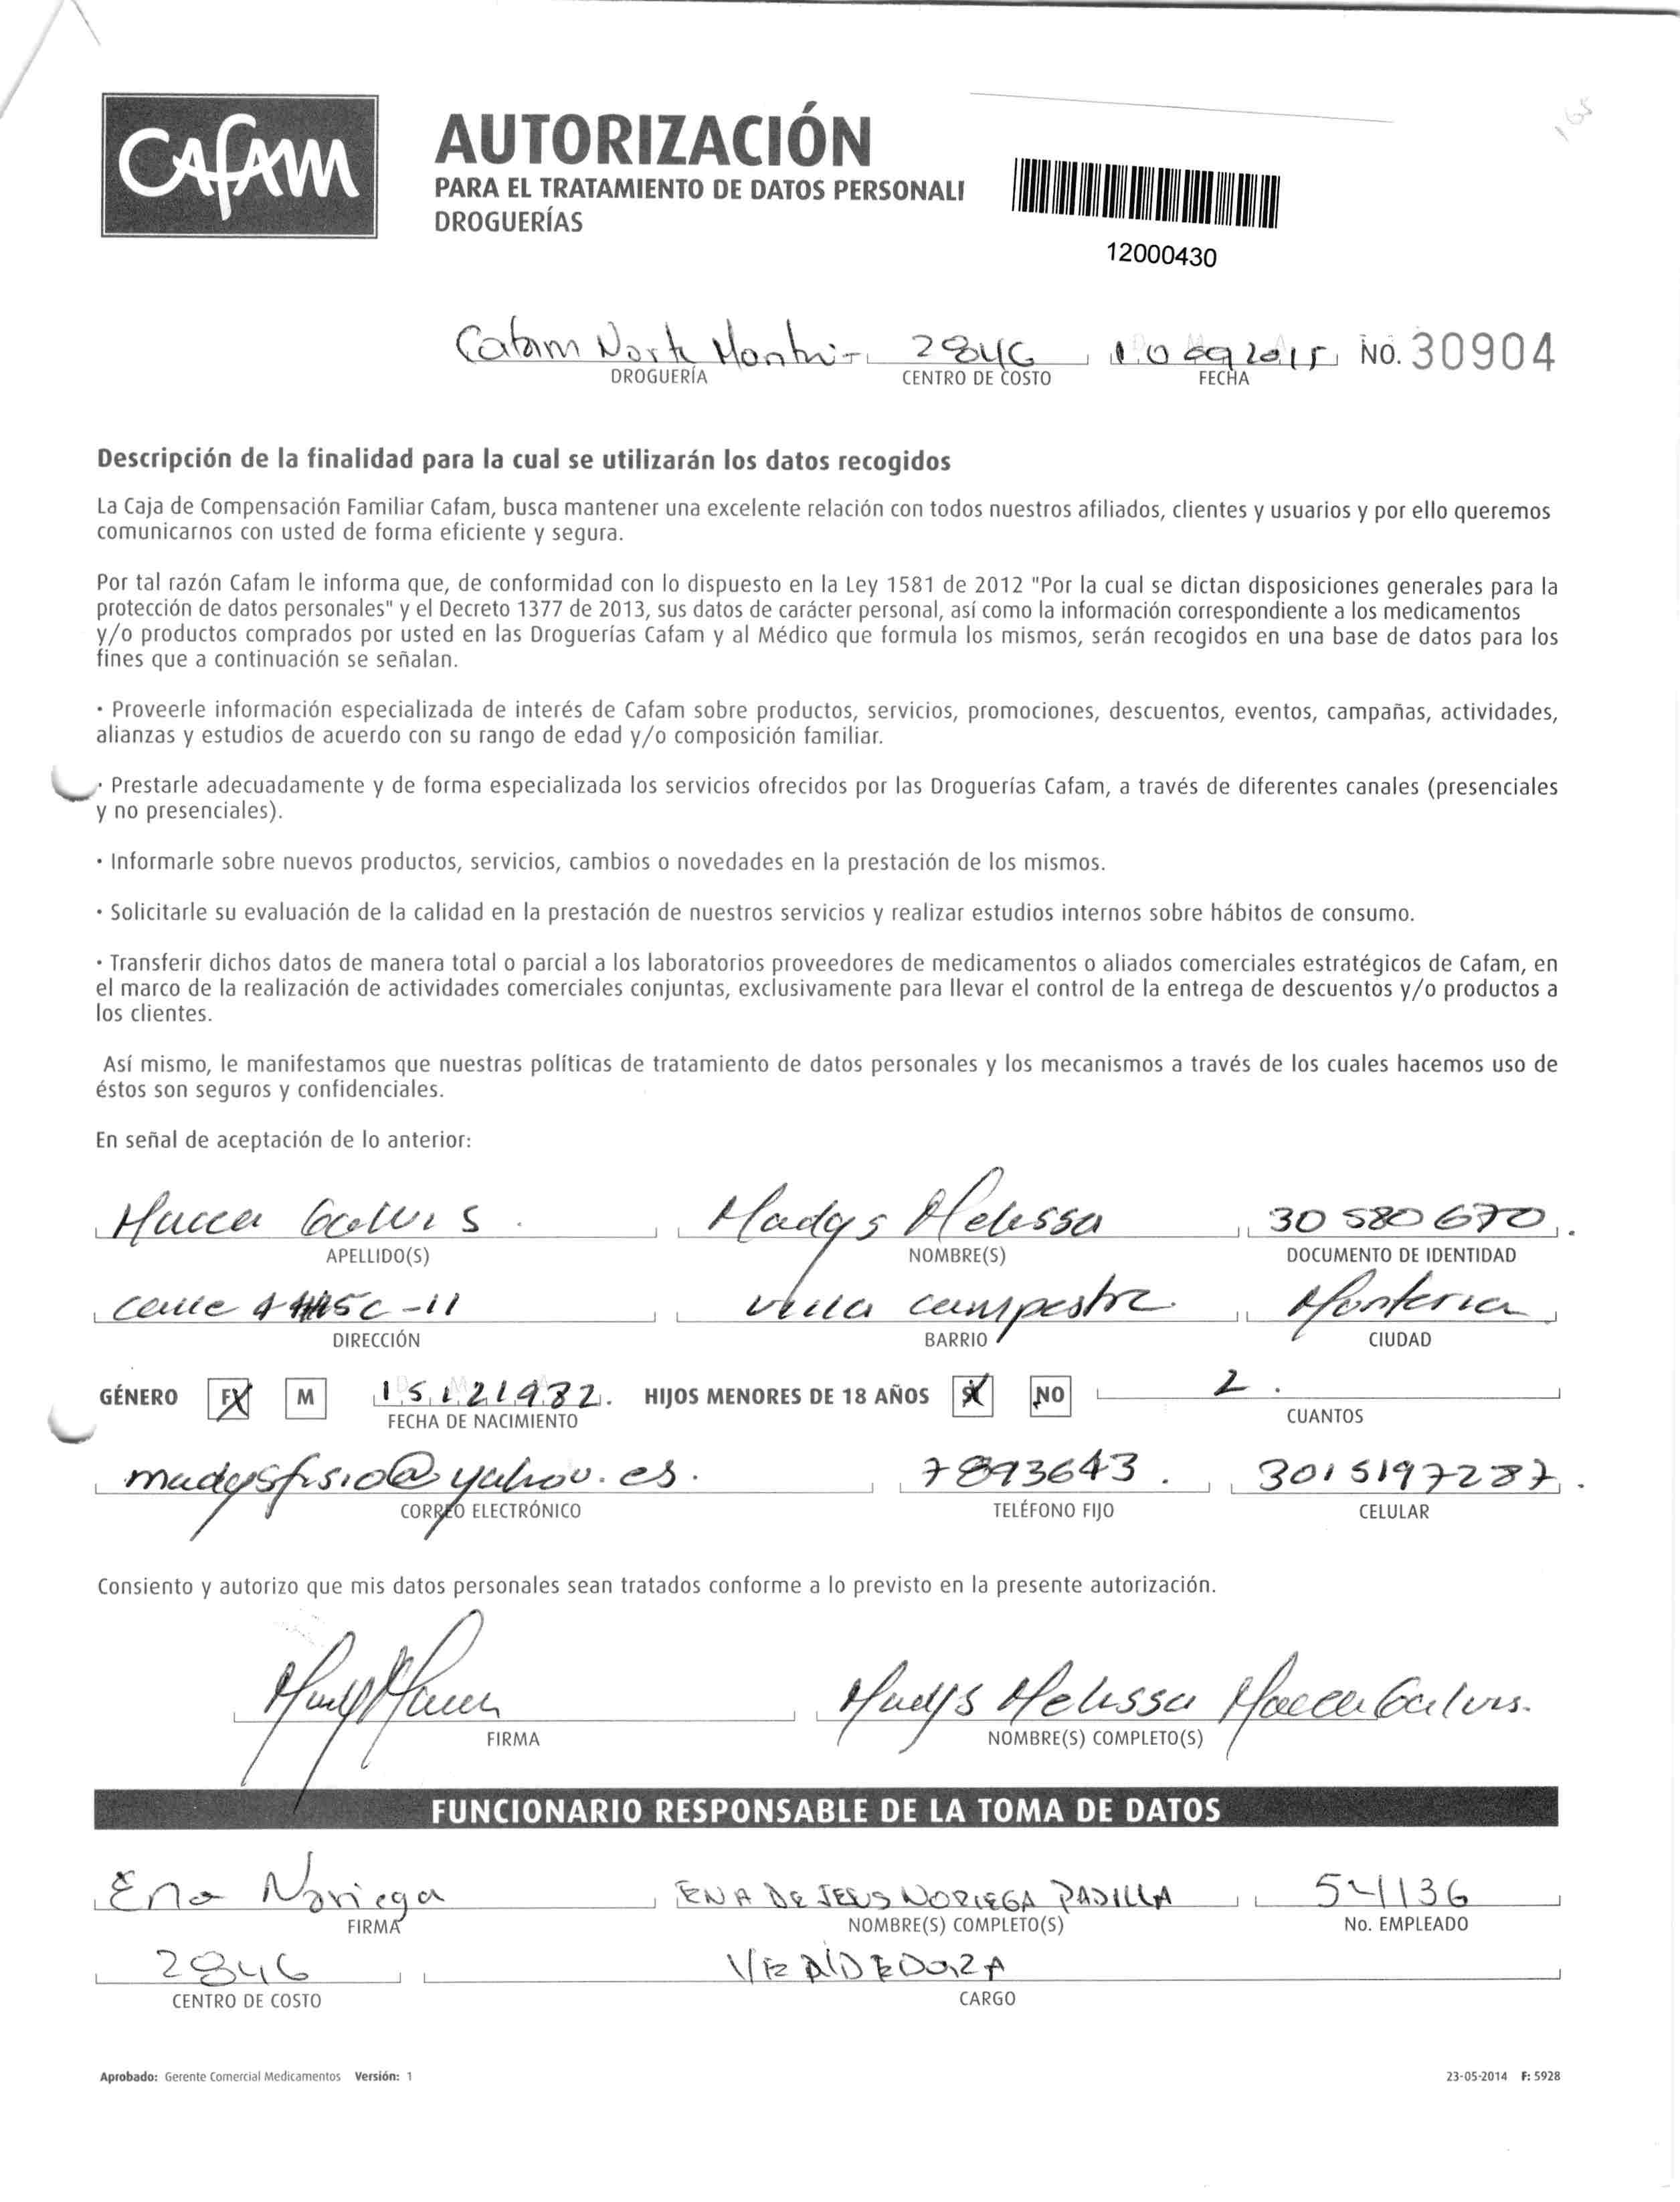 CAFAM
AUTORIZACIÓN
PARA EL TRATAMIENTO DE DATOS PERSONALI
DROGUERÍAS
12000430
165
2846 10 09 2015 No. 30904
DROGUERÍA CENTRO DE COSTO FECHA
Descripción de la finalidad para la cual se utilizarán los datos recogidos
La Caja de Compensación Familiar Cafam, busca mantener una excelente relación con todos nuestros afiliados, clientes y usuarios y por ello queremos
comunicarnos con usted de forma eficiente y segura.
Por tal razón Cafam le informa que, de conformidad con lo dispuesto en la Ley 1581 de 2012 "Por la cual se dictan disposiciones generales para la
protección de datos personales" y el Decreto 1377 de 2013, sus datos de carácter personal, así como la información correspondiente a los medicamentos
y/o productos comprados por usted en las Droguerías Cafam y al Médico que formula los mismos, serán recogidos en una base de datos para los
fines que a continuación se señalan.
• Proveerle información especializada de interés de Cafam sobre productos, servicios, promociones, descuentos, eventos, campañas, actividades,
alianzas y estudios de acuerdo con su rango de edad y/o composición familiar.
• Prestarle adecuadamente y de forma especializada los servicios ofrecidos por las Droguerías Cafam, a través de diferentes canales (presenciales
y no presenciales).
• Informarle sobre nuevos productos, servicios, cambios o novedades en la prestación de los mismos.
• Solicitarle su evaluación de la calidad en la prestación de nuestros servicios y realizar estudios internos sobre hábitos de consumo.
• Transferir dichos datos de manera total o parcial a los laboratorios proveedores de medicamentos o aliados comerciales estratégicos de Cafam, en
el marco de la realización de actividades comerciales conjuntas, exclusivamente para llevar el control de la entrega de descuentos y/o productos a
los clientes.
Así mismo, le manifestamos que nuestras políticas de tratamiento de datos personales y los mecanismos a través de los cuales hacemos uso de
éstos son seguros y confidenciales.
En señal de aceptación de lo anterior:
Galvis Madys Melissa 30580670.
APELLIDO(S) NOMBRE(S) DOCUMENTO DE IDENTIDAD
calle villa campestre Monteria
DIRECCIÓN BARRIO CIUDAD
GÉNERO F M 15 12 1982. HIJOS MENORES DE 18 AÑOS SI NO 2.
FECHA DE NACIMIENTO CUANTOS
madysfisio@yahoo.es. 7893643. 3015197287.
CORREO ELECTRÓNICO TELÉFONO FIJO CELULAR
Consiento y autorizo que mis datos personales sean tratados conforme a lo previsto en la presente autorización.
Madys Melissa Galvis.
FIRMA NOMBRE(S) COMPLETO(S)
FUNCIONARIO RESPONSABLE DE LA TOMA DE DATOS
Ena Noriega ENA DE JESUS NORIEGA PADILLA 54136
FIRMA NOMBRE(S) COMPLETO(S) No. EMPLEADO
2846 VENDEDORA
CENTRO DE COSTO CARGO
Aprobado: Gerente Comercial Medicamentos Versión: 1 23-05-2014 F: 5928